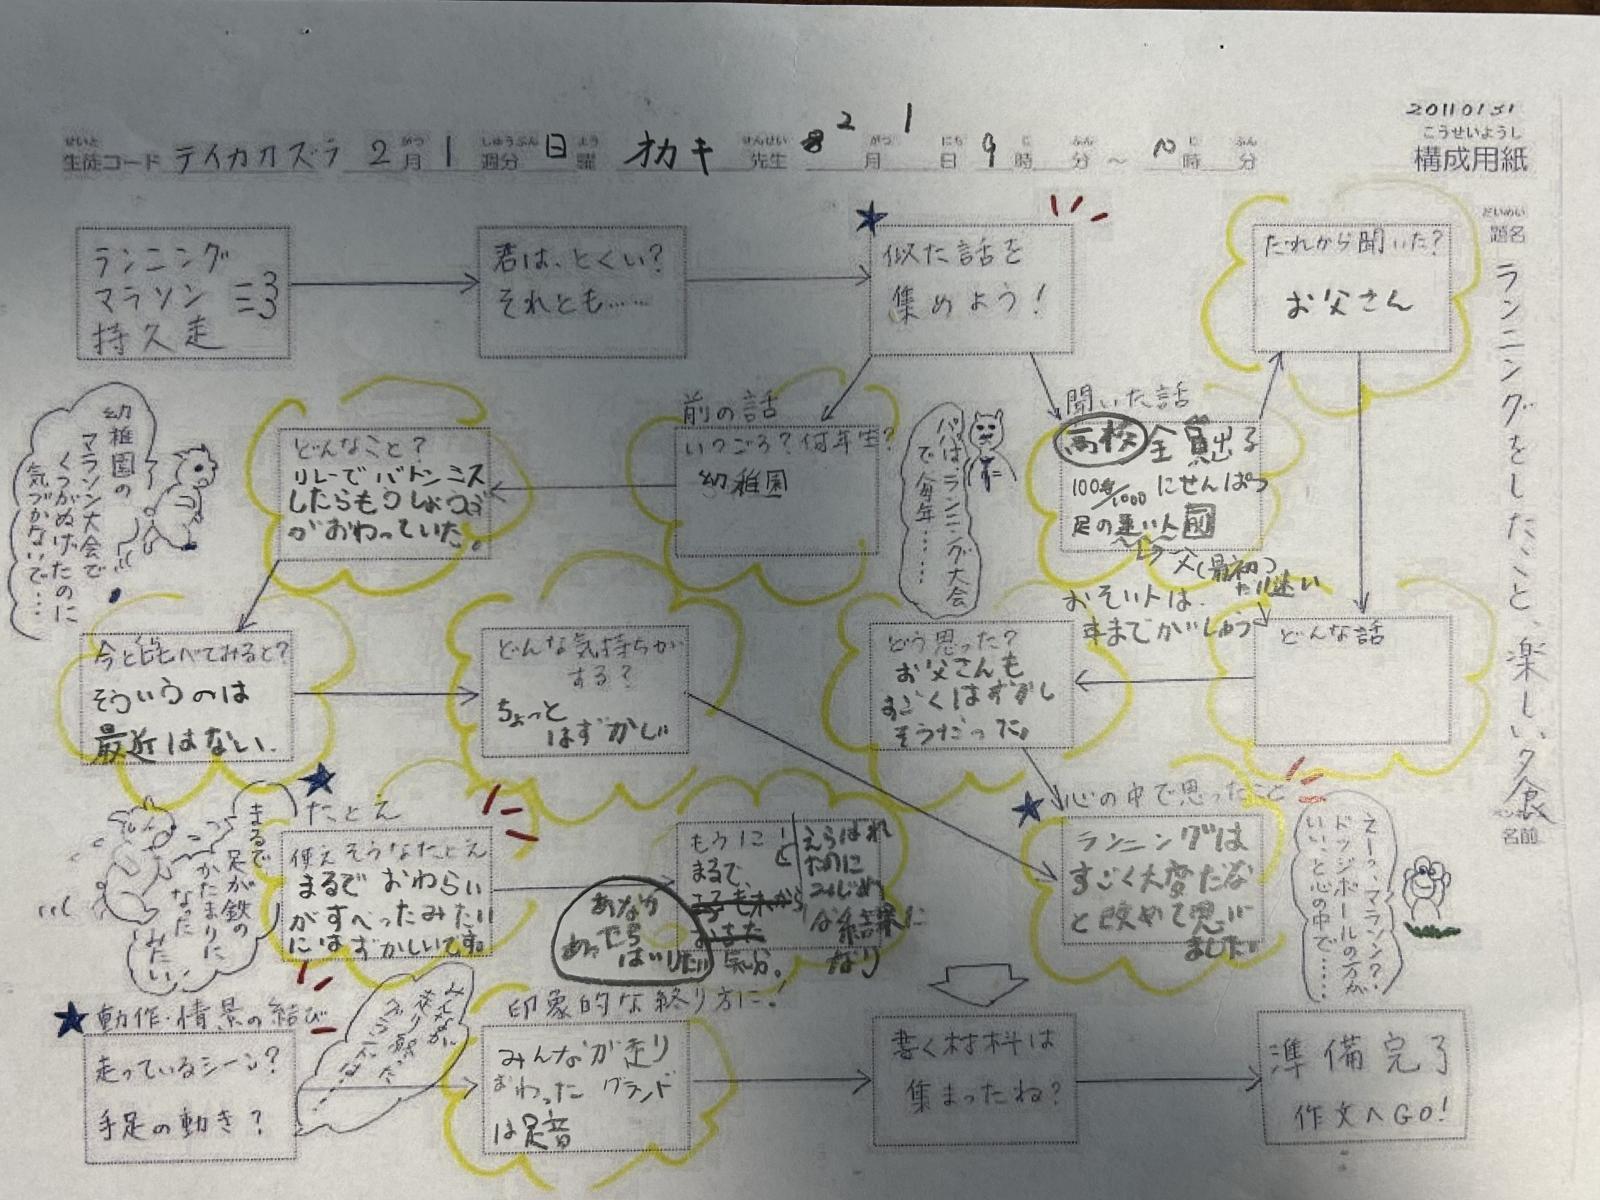 20110131
こうせいようし
構成用紙
生徒コード テイカカズラ 2月 1週分 日曜 オカキ 先生 2月 1日 9時 分～10時 分
だいめい
題名
ランニングをしたこと、楽しい夕食
名前
ランニング
マラソン
持久走
君は、とくい？
それとも……
似た話を
集めよう！
だれから聞いた？
お父さん
幼稚園の
マラソン大会で
くつがぬげたのに
気づかないで…
どんなこと？
リレーでバトンミス
したらもうしょうぶ
がおわっていた。
前の話
いつごろ？何年生？
幼稚園
パパは、ランニング大会
で毎年……
聞いた話
高校 全員出る
足の速い人前
父(最初)
おそい人は、
どんな話
どう思った？
お父さんも
すごくはずかし
そうだった。
今と比べてみると？
そういうのは
最近はない.
どんな気持ちが
する？
ちょっと
はずかしい
たとえ
まるで、
足が鉄の
かたまりに
なった
みたい
使えそうなたとえ
まるでおわらい
がすべったみたい
にはずかしいです。
もうに
まるで
あなが
あったら
はいりたい
気分。
えらばれ
たのに
みじめ
な結果に
なり
心の中で思ったこと
ランニングは
すごく大変だな
と改めて思い
ました
えーっ、マラソン？
ドッジボールの方が
いい、と心の中で……
動作・情景の結び
走っているシーン？
手足の動き？
みんなが
走り終った
印象的な終り方に！
みんなが走り
おわったグランド
は足音
書く材料は
集まったね？
準備完了
作文へGO！